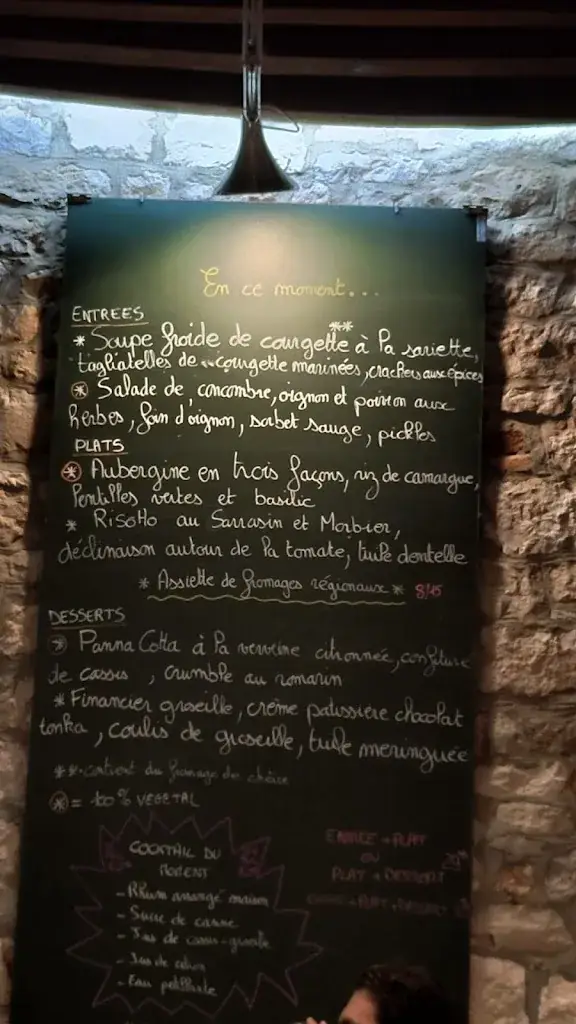 En ce moment...
ENTREES
* Soupe froide de courgette ** à la sariette,
tagliatelles de courgette marinées, crackers aux épices
* Salade de concombre, oignon et poivron aux
herbes, foin d'oignon, sorbet sauge, pickles
PLATS
* Aubergine en trois façons, riz de camargue,
lentilles vertes et basilic
* Risotto au Sarrasin et Morbier,
déclinaison autour de la tomate, tuile dentelle
* Assiette de fromages régionaux *
DESSERTS
* Panna Cotta à la verveine citronnée, confiture
de cassis, crumble au romarin
* Financier groseille, crème patissiere chocolat
tonka, coulis de groseille, tuile meringuée
** contient du fromage de chèvre
* = 100% VEGETAL
COCKTAIL DU
MOMENT
- Rhum arrangé maison
- Sucre de canne
- Jus de cassis-groseille
- Jus de citron
- Eau pétillante
ENTREE + PLAT
OU
PLAT + DESSERT
ENTREE + PLAT + DESSERT